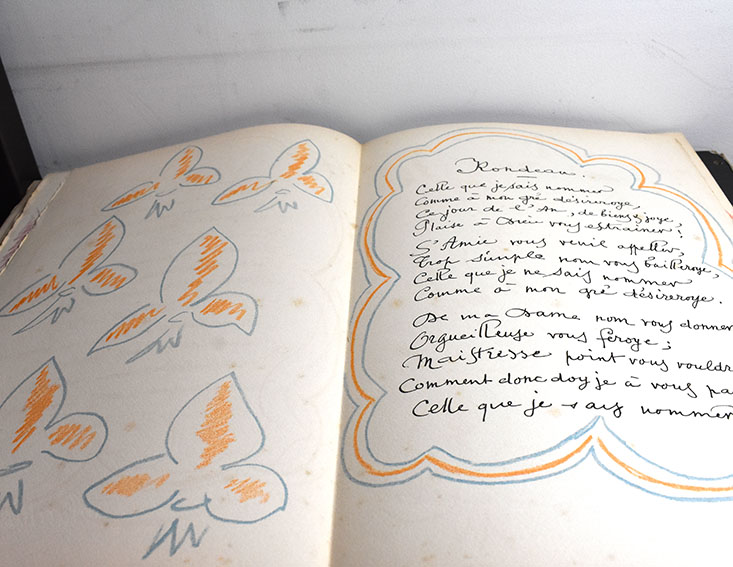 Rondeau.
Celle que je sais nommer
Comme à mon gré désireroye,
Ce jour de l'An, de biens & joye,
Plaise à Dieu vous estrainer!
S'Amie vous veuil appeller,
Trop simple nom vous bailleroye,
Celle que je ne sais nommer
Comme à mon gré désireroye.
De ma Dame nom vous donner
Orgueilleuse vous feroye;
Maistresse point vous vouldr
Comment donc doy je à vous pa
Celle que je sais nommer